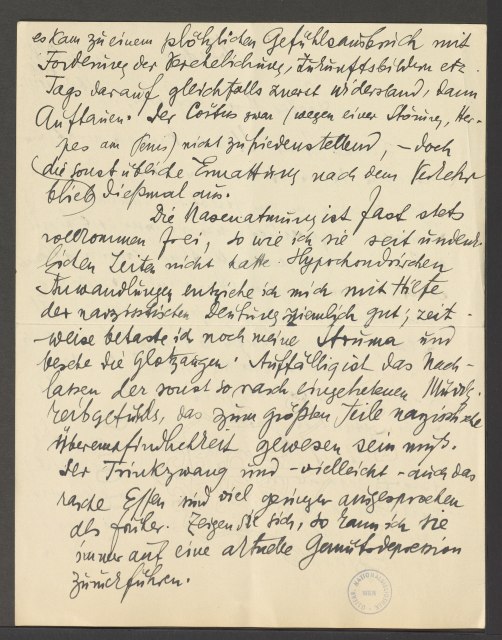 es kam zu einem plötzlichen Gefühlsausbruch mit
Forderung der Verehelichung, Zukunftsbildern etz.
Tags darauf gleichfalls zuerst Widerstand, dann
Auftauen. Der Coitus zwar (wegen einer Störung, Her-
pes am Penis) nicht zufriedenstellend, – doch
die sonst übliche Ermattung nach dem Verkehr
blieb dießmal aus.
Die Nasenatmung ist fast stets
vollkommen frei, so wie ich sie seit undenk-
lichen Zeiten nicht hatte. Hypochondrischen
Anwandlungen entziehe ich mich mit Hilfe
der narzisstischen Deutung ziemlich gut; zeit-
weise betaste ich noch meine Struma und
besehe die Glotzaugen. Auffällig ist das Nach-
lassen der sonst so rasch eingetretenen Müdig-
keitsgefühls, das zum größten Teile narzissische
Überempfindlichkeit gewesen sein muß.
Der Trinkzwang und – vielleicht – auch das
rasche Essen sind viel geringer ausgesprochen
als früher. Zeigen sie sich, so kann ich sie
immer auf eine aktuelle Gemütsdepression
zurückführen.
ÖSTERR. NATIONALBIBLIOTHEK
WIEN